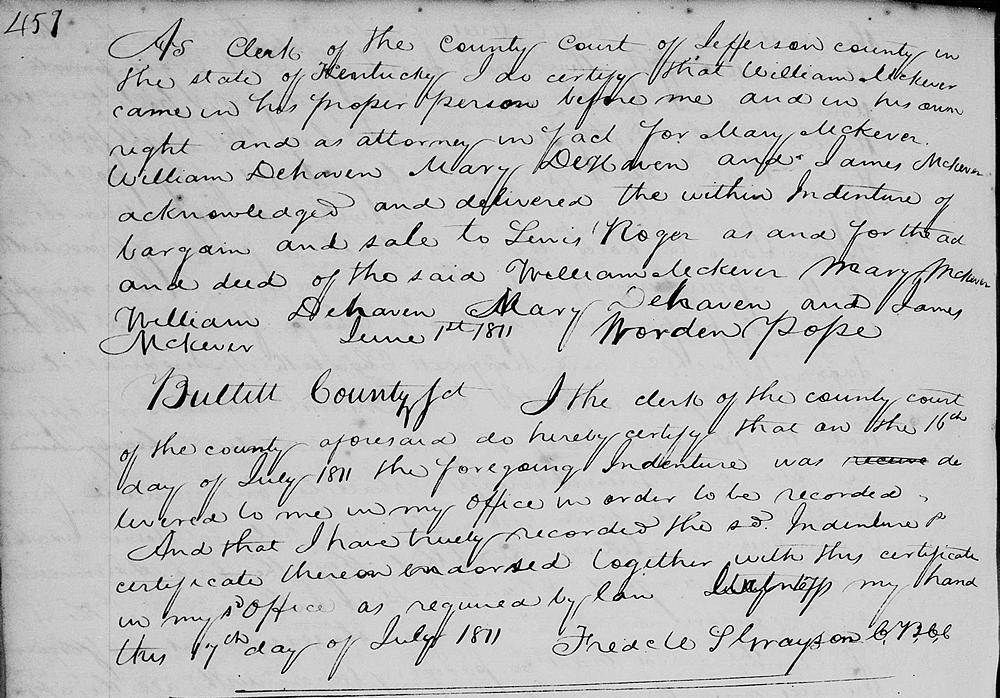 457
As Clerk of the County Court of Jefferson county in
the state of Kentucky I do certify that William McKever
came in his proper person before me and in his own
right and as attorney in fact for Mary McKever.
William Dehaven Mary DeHaven and James McKever
acknowledged and delivered the within Indenture of
bargain and sale to Lewis Roger as and for the ad
and deed of the said William McKever Mary McKever
William Dehaven Mary Dehaven and James
McKever June 1st 1811 Worden Pope
Bullitt County Sct I the clerk of the county court
of the county aforesaid do hereby certify that on the 16th
day of July 1811 the foregoing Indenture was receive de
livered to me in my office in order to be recorded,
And that I have truly recorded the sd. Indenture &
certificate thereon endorsed together with this certificate
in my sd Office as required by law Witness my hand
this 17th day of July 1811 Fredck S Grayson C.B.C.C